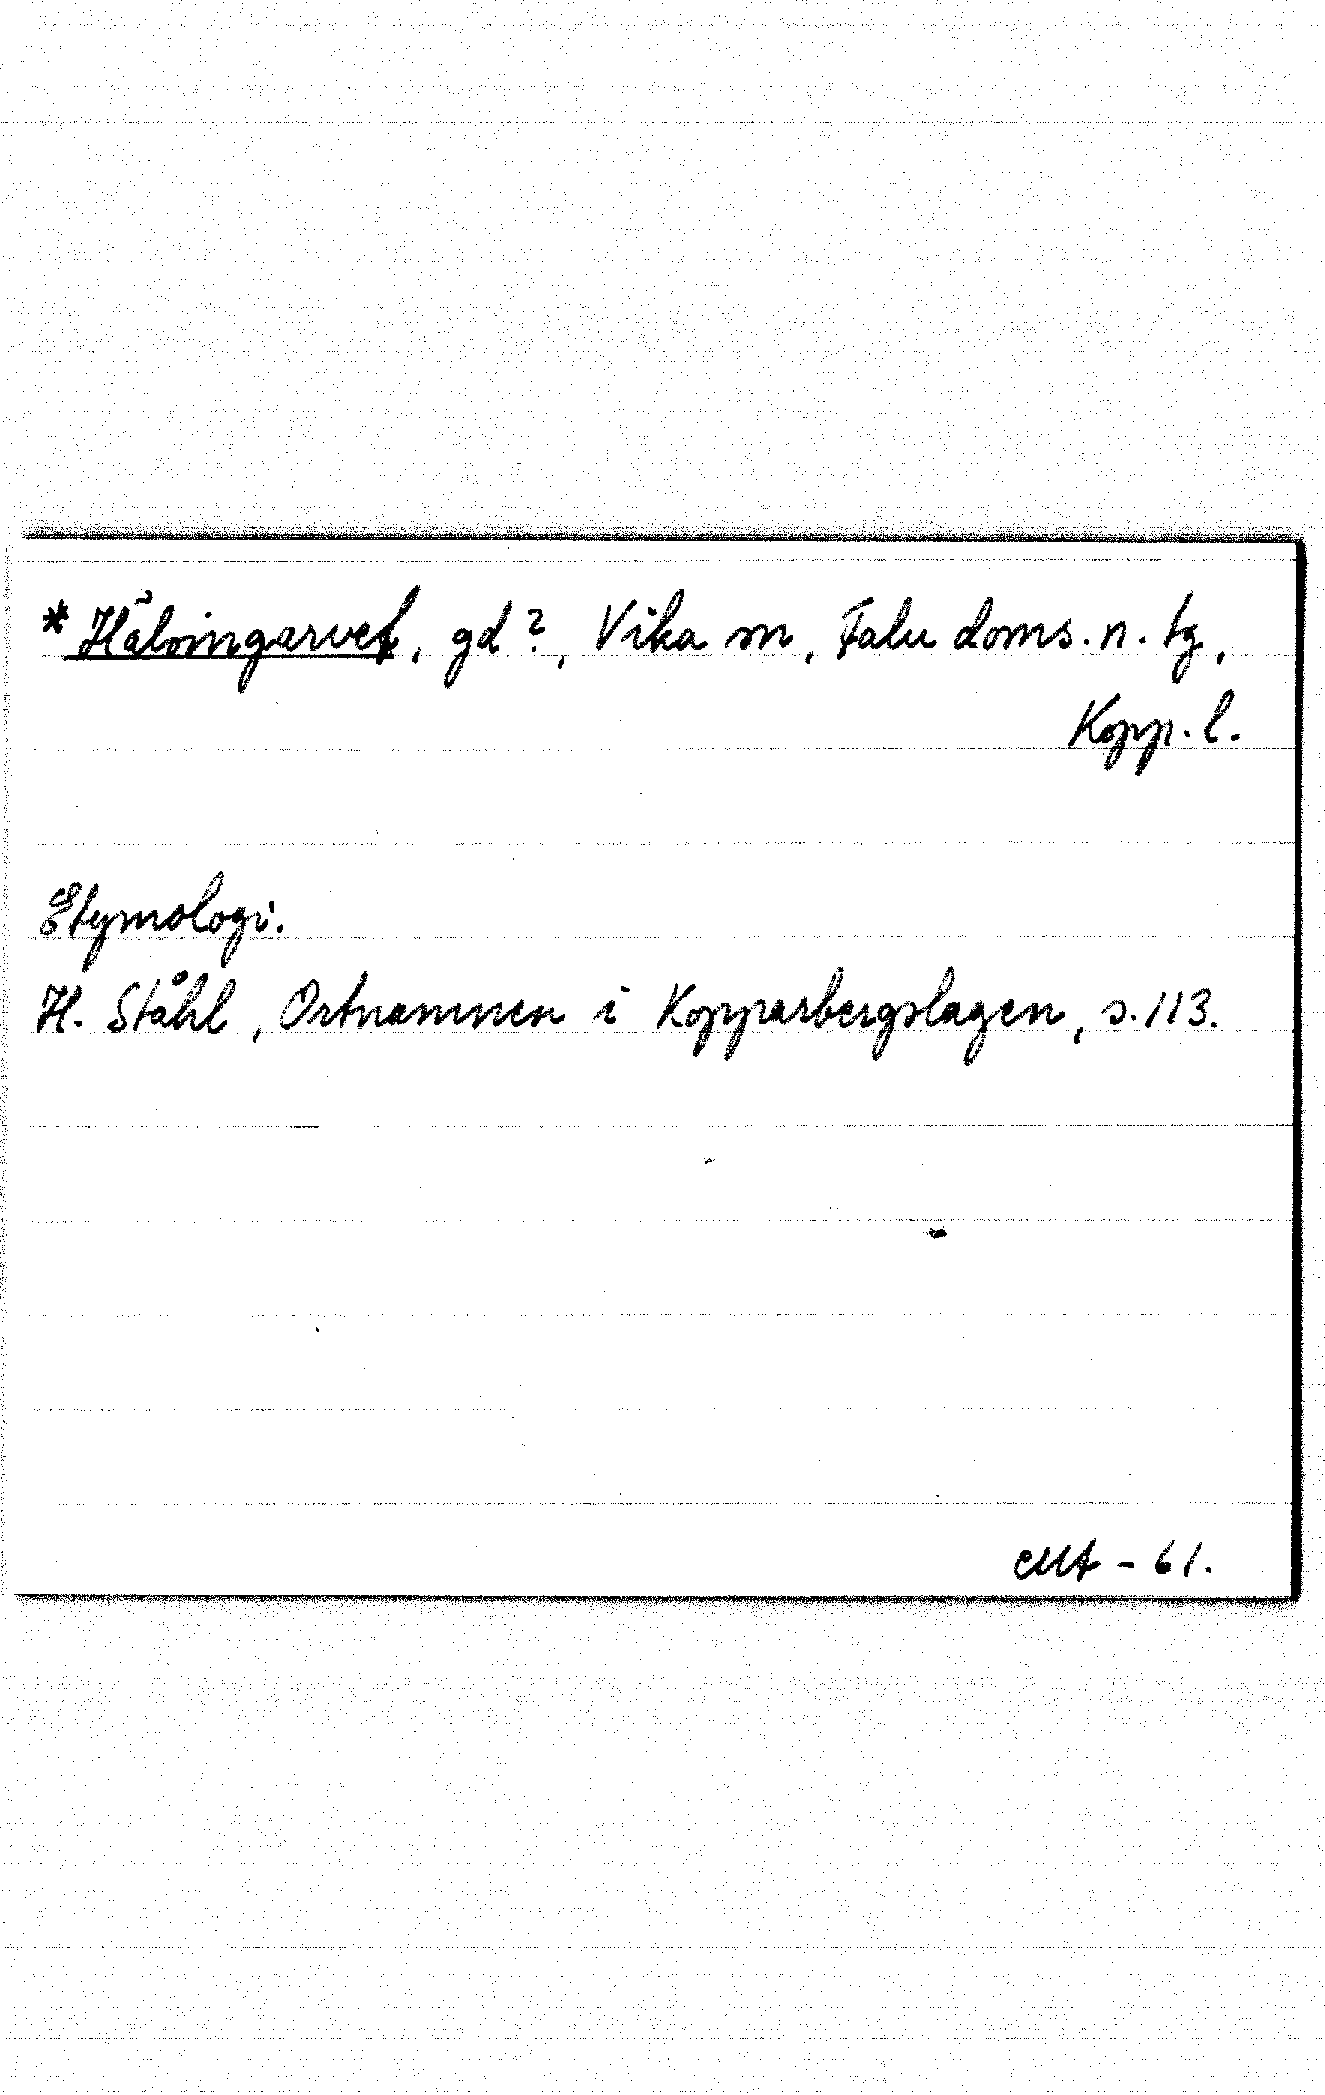 * Hälsingarvet, gd?, Vika sn, Falu doms. n. tg,
Kopp. l.
Etymologi.
H. Ståhl, Ortnamnen i Kopparbergslagen, s. 113.
- 61.